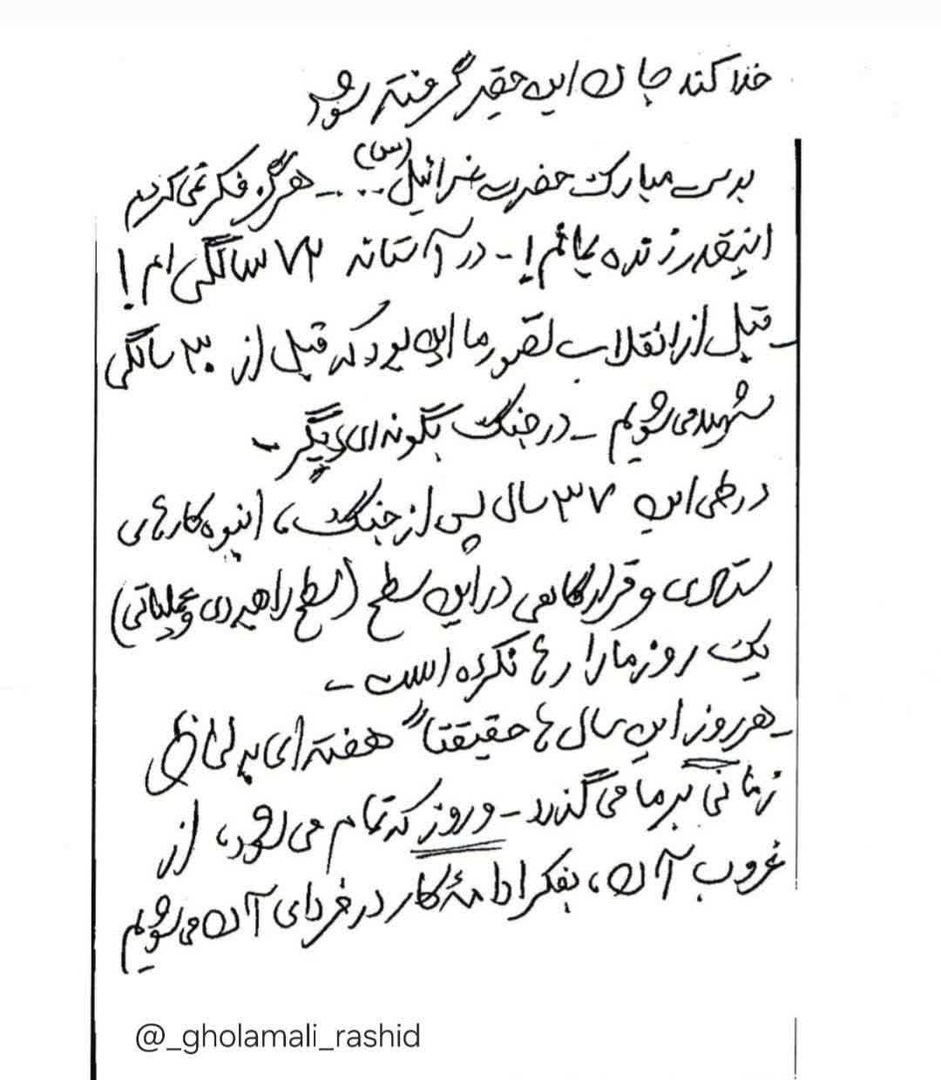 خدا کند جان این حقیر گرفته شود
بدست مبارک حضرت عزرائیل (س) .. - هرگز فکر نمی‌کردیم
اینقدر زنده بمانم! - در آستانه ۷۲ سالگی‌ام!
- قبل از انقلاب تصور ما این بود که قبل از ۳۰ سالگی
شهید می‌شویم - در جنگ بگونه‌ای دیگر -
در طی این ۳۷ سال پس از جنگ، انبوه کارهای
ستادی و قرارگاهی در این سطح (سطح راهبردی و عملیاتی)
یک روز ما را رها نکرده است -
- هر روز این سال‌ها حقیقتاً هفته‌ای به لحاظ
زمانی بر ما می‌گذرد - و روز که تمام می‌شود، از
غروب آن، بفکر ادامهٔ کار در فردای آن می‌شویم
@_gholamali_rashid